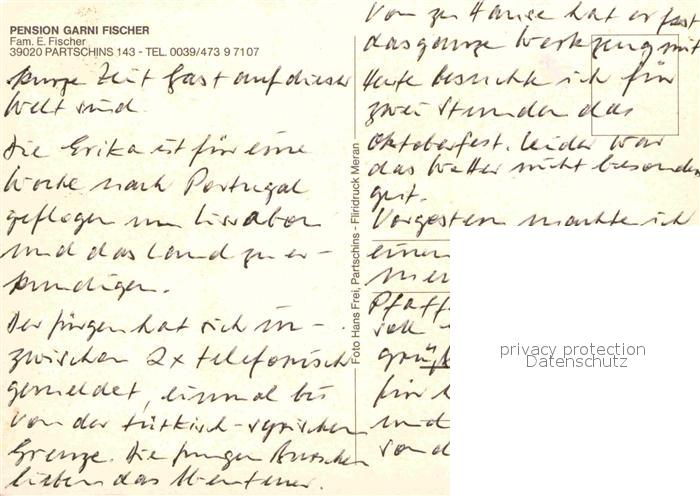 PENSION GARNI FISCHER
Fam. E. Fischer
39020 PARTSCHINS 143 - TEL. 0039/473 9 7107
kurze Zeit Gast auf dieser
Welt sind.
Die Erika ist für eine
Woche nach Portugal
geflogen um Lissabon
und das Land zu er-
kundigen.
Der Jürgen hat sich in-
zwischen 2x telefonisch
gemeldet, einmal bis
von der türkisch-syrischen
Grenze. Die jungen Burschen
lieben das Abenteuer.
Foto Hans Frei, Partschins - Fliridruck Meran
Von zu Hause hat er fast
das ganze Werkzeug mit
Heute besuchte ich für
zwei Stunden das
Oktoberfest. Leider war
das Wetter nicht besonders
gut.
Vorgestern machte ich
einen
Pfaff
grü
für
und
von d
privacy protection
Datenschutz